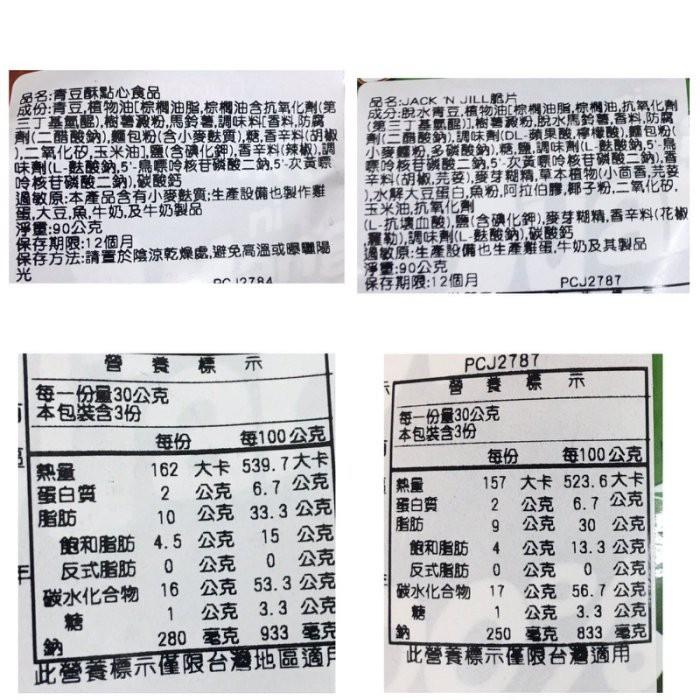 品名:青豆酥點心食品
成份:青豆,植物油[棕櫚油脂,棕櫚油含抗氧化劑(第
三丁基氫醌)],樹薯澱粉,馬鈴薯,調味料[香料,防腐
劑(二醋酸鈉),麵包粉(含小麥麩質),糖,香辛料(胡椒
),二氧化矽,玉米油],鹽(含碘化鉀),香辛料(辣椒),調
味劑(L-麩酸鈉,5'-鳥嘌呤核苷磷酸二鈉,5'-次黃嘌
呤核苷磷酸二鈉),碳酸鈣
過敏原:本產品含有小麥麩質;生產設備也製作雞
蛋,大豆,魚,牛奶及牛奶製品
淨重:90公克
保存期限:12個月
保存方法:請置於陰涼乾燥處,避免高溫或曝曬陽
光
PCJ2784
品名:JACK 'N JILL脆片
成分:脫水青豆,植物油[棕櫚油脂,棕櫚油,抗氧化劑
(第三丁基氫醌)],樹薯澱粉,脫水馬鈴薯,香料,防腐
劑(二醋酸鈉),調味劑(DL-蘋果酸,檸檬酸),麵包粉(
小麥麵粉,多磷酸鈉),糖,鹽,調味劑(L-麩酸鈉,5'-鳥
嘌呤核苷磷酸二鈉,5'-次黃嘌呤核苷磷酸二鈉),香
辛料(胡椒,芫荽),麥芽糊精,草本植物(小茴香,芫荽
),水解大豆蛋白,魚粉,阿拉伯膠,椰子粉,二氧化矽,
玉米油,抗氧化劑
(L-抗壞血酸),鹽(含碘化鉀),麥芽糊精,香辛料(花椒
,羅勒),調味劑(L-麩酸鈉),碳酸鈣
過敏原:生產設備也生產雞蛋,牛奶及其製品
淨重:90公克
保存期限:12個月
PCJ2787
營養標示
每一份量30公克
本包裝含3份
每份 每100公克
熱量 162 大卡 539.7大卡
蛋白質 2 公克 6.7 公克
脂肪 10 公克 33.3 公克
飽和脂肪 4.5 公克 15 公克
反式脂肪 0 公克 0 公克
碳水化合物 16 公克 53.3 公克
糖 1 公克 3.3 公克
鈉 280 毫克 933 毫克
此營養標示僅限台灣地區適用
PCJ2787
營養標示
每一份量30公克
本包裝含3份
每份 每100公克
熱量 157 大卡 523.6大卡
蛋白質 2 公克 6.7 公克
脂肪 9 公克 30 公克
飽和脂肪 4 公克 13.3 公克
反式脂肪 0 公克 0 公克
碳水化合物 17 公克 56.7 公克
糖 1 公克 3.3 公克
鈉 250 毫克 833 毫克
此營養標示僅限台灣適用